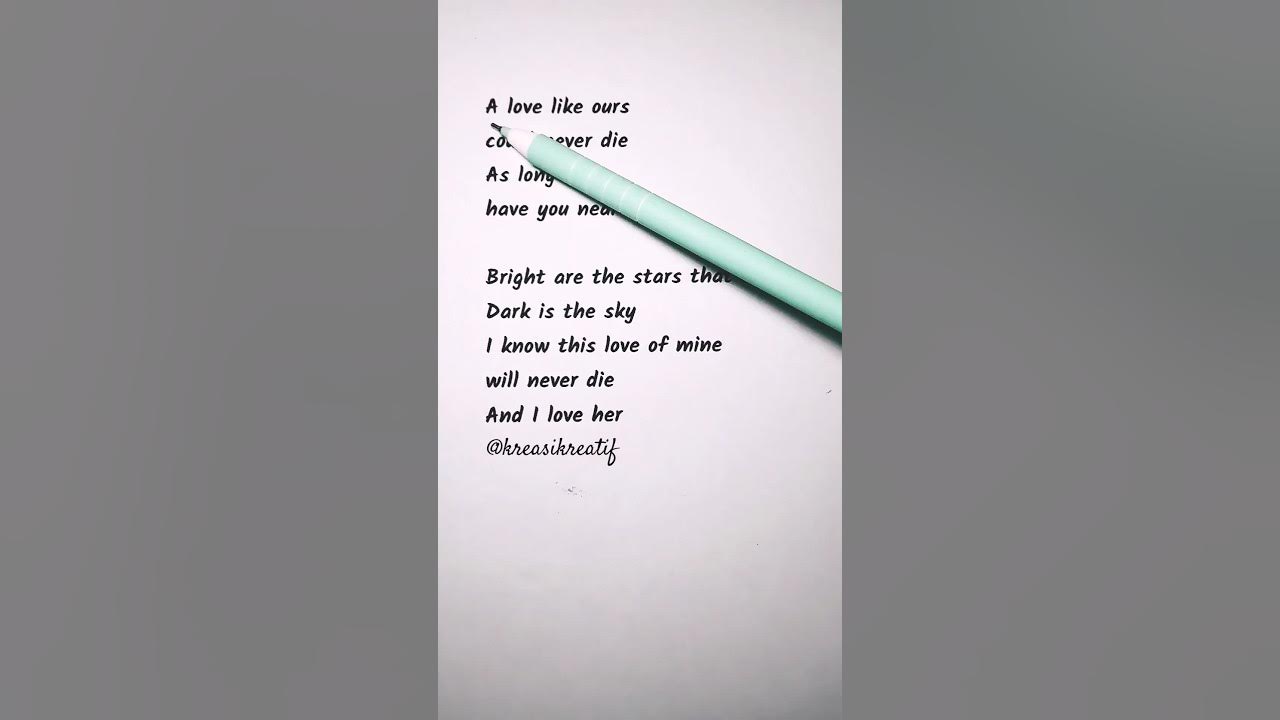 A love like ours
never die
As long
have you near
Bright are the stars that
Dark is the sky
I know this love of mine
will never die
And I love her
@kreasikreatif